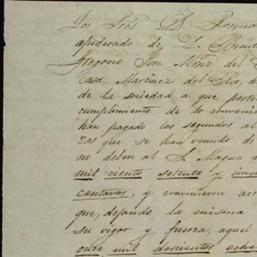 Los Sres D.
apoderado de D. Benit
Gregorio José Mtnz del
Casa Martinez del Rio, h
de la sociedad a que perte
cumplimiento de lo conveni
han pagado los segundos al
que se han venido de
no deben al S. Magua
mil ciento setenta y cinco
centavos, y convinieron
que, dejando la misma
su vigor y fuerza, aquel
once mil doscientos oche